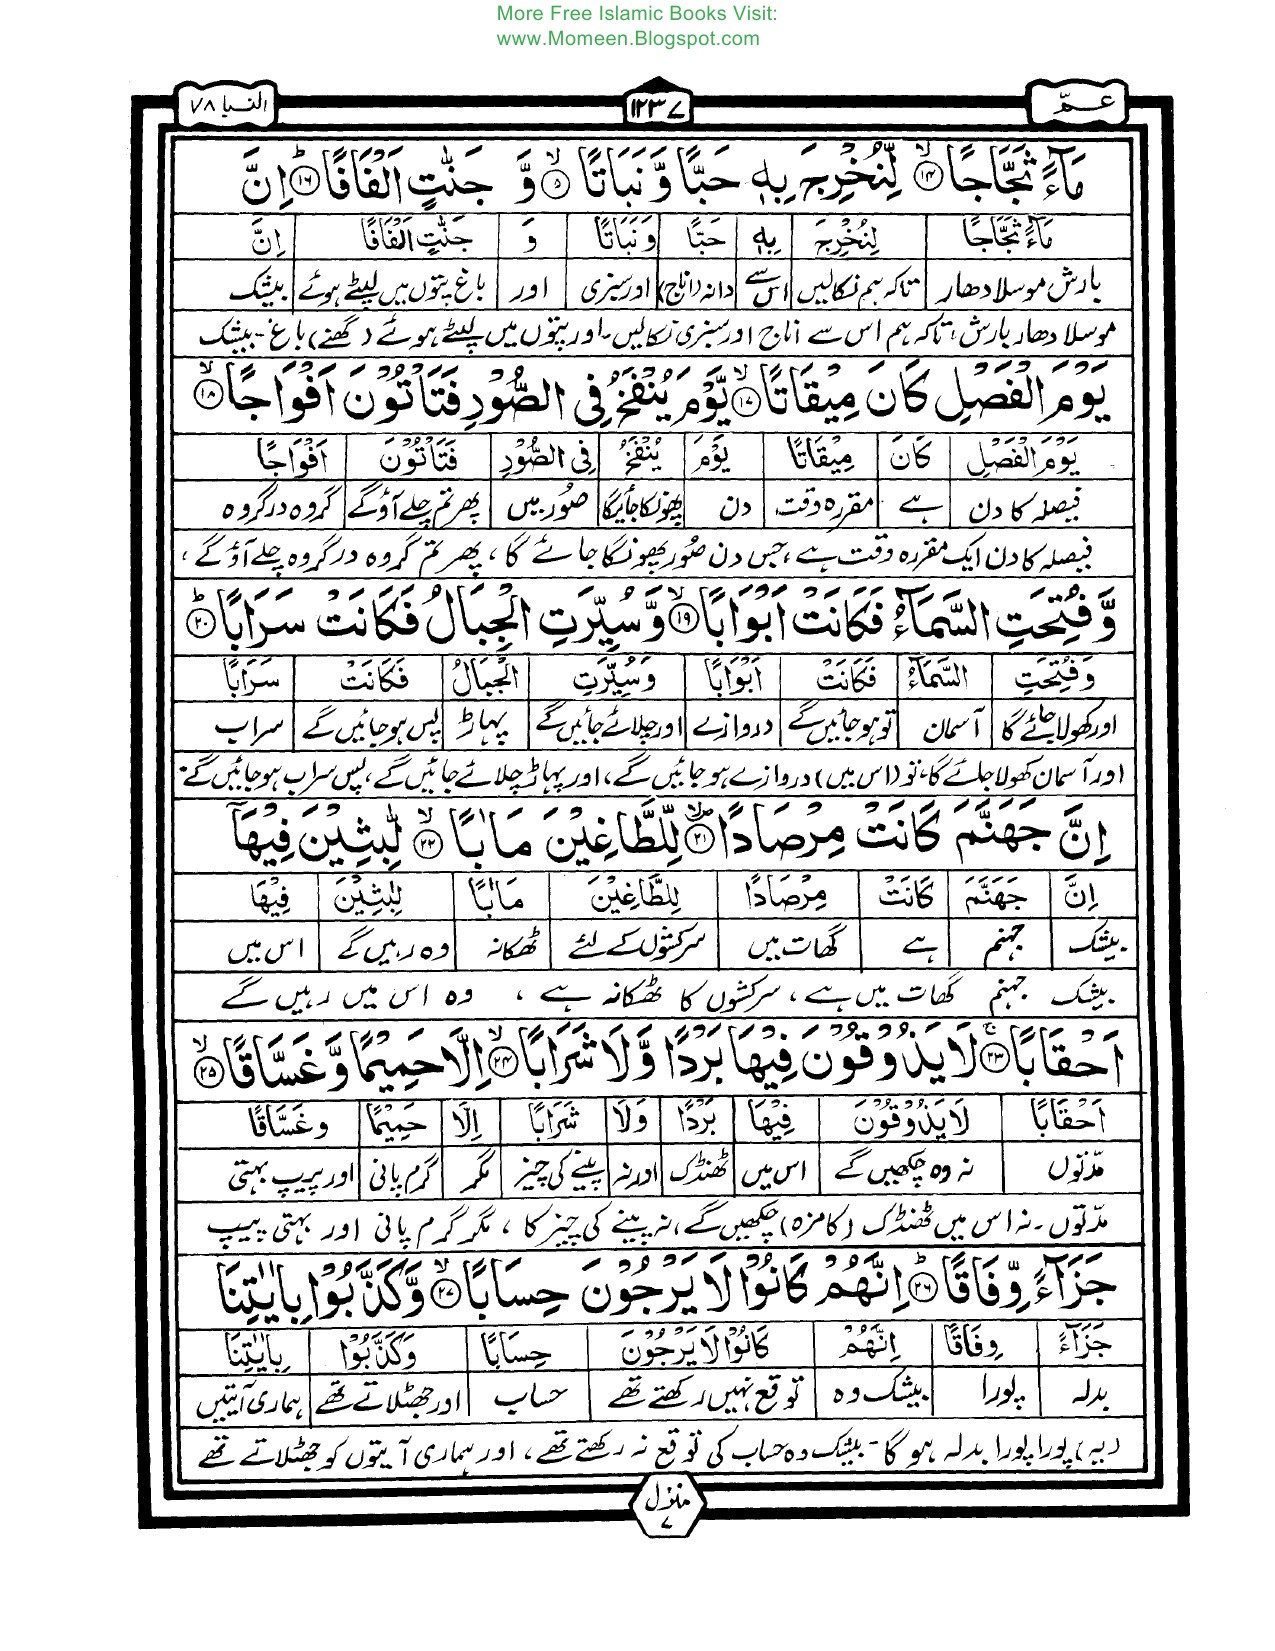 More Free Islamic Books Visit:
www.Momeen.Blogspot.com
عـمّ ١٢٣٧ النبا ٧٨
مَآءً ثَجَّاجًا ۙ﴿١٤﴾ لِّنُخْرِجَ بِهٖ حَبًّا وَّنَبَاتًا ۙ﴿٥﴾ وَّ جَنّٰتٍ اَلْفَافًا ؕ﴿١٦﴾ اِنَّ
مَآءً ثَجَّاجًا لِنُخْرِجَ بِهٖ حَبًّا وَنَبَاتًا وَ جَنّٰتٍ اَلْفَافًا اِنَّ
بارش موسلادھار تاکہ ہم نکالیں اس سے دانہ (اناج) اور سبزی اور باغ پتوں میں لپیٹے ہوئے بیشک
موسلادھار بارش، تاکہ ہم اس سے اناج اور سبزی نکالیں۔ اور پتوں میں لپیٹے ہوئے (گھنے) باغ۔ بیشک
يَوْمَ الْفَصْلِ كَانَ مِيْقَاتًا ۙ﴿١٧﴾ يَّوْمَ يُنْفَخُ فِى الصُّوْرِ فَتَاْتُوْنَ اَفْوَاجًا ۙ﴿١٨﴾
يَوْمَ الْفَصْلِ كَانَ مِيْقَاتًا يَوْمَ يُنْفَخُ فِى الصُّوْرِ فَتَاْتُوْنَ اَفْوَاجًا
فیصلہ کا دن ہے مقررہ وقت دن پھونکا جائیگا صُور میں پھر تم چلے آؤ گے گروہ در گروہ
فیصلہ کا دن ایک مقررہ وقت ہے، جس دن صُور پھونکا جائے گا، پھر تم گروہ در گروہ چلے آؤ گے،
وَّفُتِحَتِ السَّمَآءُ فَكَانَتْ اَبْوَابًا ۙ﴿١٩﴾ وَّسُيِّرَتِ الْجِبَالُ فَكَانَتْ سَرَابًا ؕ﴿٢٠﴾
وَفُتِحَتِ السَّمَآءُ فَكَانَتْ اَبْوَابًا وَسُيِّرَتِ الْجِبَالُ فَكَانَتْ سَرَابًا
اور کھولا جائے گا آسمان تو ہو جائیں گے دروازے اور چلائے جائیں گے پہاڑ پس ہو جائیں گے سراب
اور آسمان کھولا جائے گا، تو (اس میں) دروازے ہو جائیں گے، اور پہاڑ چلائے جائیں گے، پس سراب ہو جائیں گے۔
اِنَّ جَهَنَّمَ كَانَتْ مِرْصَادًا ۙ﴿٢١﴾ لِّلطَّاغِيْنَ مَاٰبًا ۙ﴿٢٢﴾ لّٰبِثِيْنَ فِيْهَآ
اِنَّ جَهَنَّمَ كَانَتْ مِرْصَادًا لِلطَّاغِيْنَ مَاٰبًا لّٰبِثِيْنَ فِيْهَا
بیشک جہنم ہے گھات میں سرکشوں کے لئے ٹھکانہ وہ رہیں گے اس میں
بیشک جہنم گھات میں ہے، سرکشوں کا ٹھکانہ ہے، وہ اس میں رہیں گے
اَحْقَابًا ۚ﴿٢٣﴾ لَا يَذُوْقُوْنَ فِيْهَا بَرْدًا وَّلَا شَرَابًا ۙ﴿٢٤﴾ اِلَّا حَمِيْمًا وَّغَسَّاقًا ۙ﴿٢٥﴾
اَحْقَابًا لَا يَذُوْقُوْنَ فِيْهَا بَرْدًا وَلَا شَرَابًا اِلَّا حَمِيْمًا وَغَسَّاقًا
مدّتوں نہ وہ چکھیں گے اس میں ٹھنڈک اور نہ پینے کی چیز مگر گرم پانی اور پیپ بہتی
مدّتوں۔ نہ اس میں ٹھنڈک (کا مزہ) چکھیں گے، نہ پینے کی چیز کا، مگر گرم پانی اور بہتی پیپ
جَزَآءً وِّفَاقًا ؕ﴿٢٦﴾ اِنَّهُمْ كَانُوْا لَا يَرْجُوْنَ حِسَابًا ۙ﴿٢٧﴾ وَّكَذَّبُوْا بِاٰيٰتِنَا
جَزَآءً وِفَاقًا اِنَّهُمْ كَانُوْا لَا يَرْجُوْنَ حِسَابًا وَكَذَّبُوْا بِاٰيٰتِنَا
بدلہ پورا بیشک وہ توقع نہیں رکھتے تھے حساب اور جھٹلاتے تھے ہماری آیتیں
(یہ) پورا پورا بدلہ ہو گا۔ بیشک وہ حساب کی توقع نہ رکھتے تھے، اور ہماری آیتوں کو جھٹلاتے تھے
منزل ٧